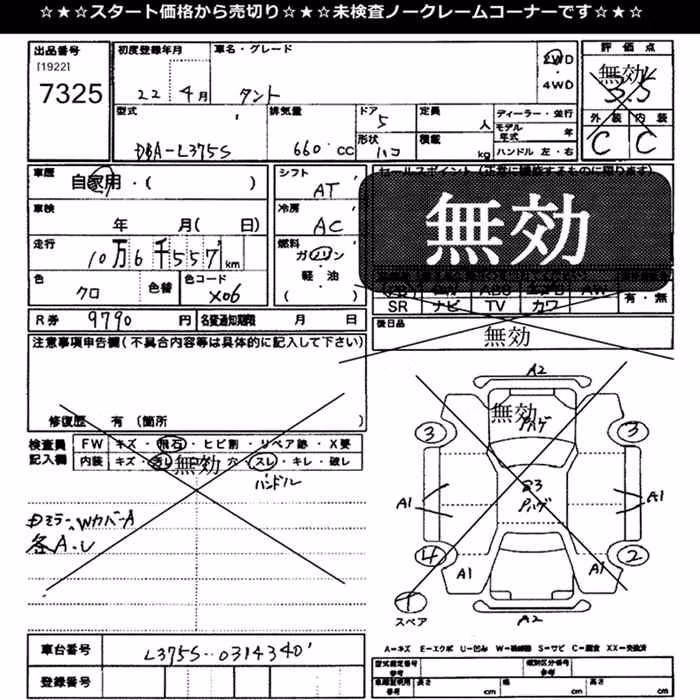 ☆★☆★スタート価格から売切り☆★☆★未検査ノークレームコーナーです☆★☆★
出品番号
[1922]
7325
初度登録年月
22 4月
車名・グレード
タント
2WD
・
4WD
評価点
無効
3.5
外装 内装
C C
型式
DBA-L375S
排気量
660 cc
ドア
5
形状
ハコ
定員
人
積載
kg
ディーラー・並行
モデル年式 年
ハンドル 左・右
車歴
自家用・( )
車検
年 月( 日)
走行
10万6千557 km
色
クロ
色替
色コード
X06
シフト
AT
冷房
AC
燃料
ガソリン
・
軽油
( )
セールスポイント(正常に機能するものに限ります)
無効
SR ナビ TV カワ
有・無
後日品
無効
R券 9790 円
名変通知期限 月 日
注意事項申告欄(不具合内容等は具体的に記入して下さい)
修復歴 有(箇所 )
検査員
記入欄
FW キズ・飛石・ヒビ割・リペア跡・X要
内装 キズ・汚レ・穴・スレ・キレ・破レ
無効
ハンドル
ミラー、WカバーA
各A.U
A2
無効
Pハゲ
3
3
B3
Pハゲ
A1
A1
4
2
A1
A1
スペア
A2
A=キズ E=エクボ U=凹み W=補修跡 S=サビ C=腐食 XX=交換済
車台番号
L375S-0314340
登録番号
型式指定番号
参考
類別区分番号
参考
長さ cm
幅 cm
高さ cm